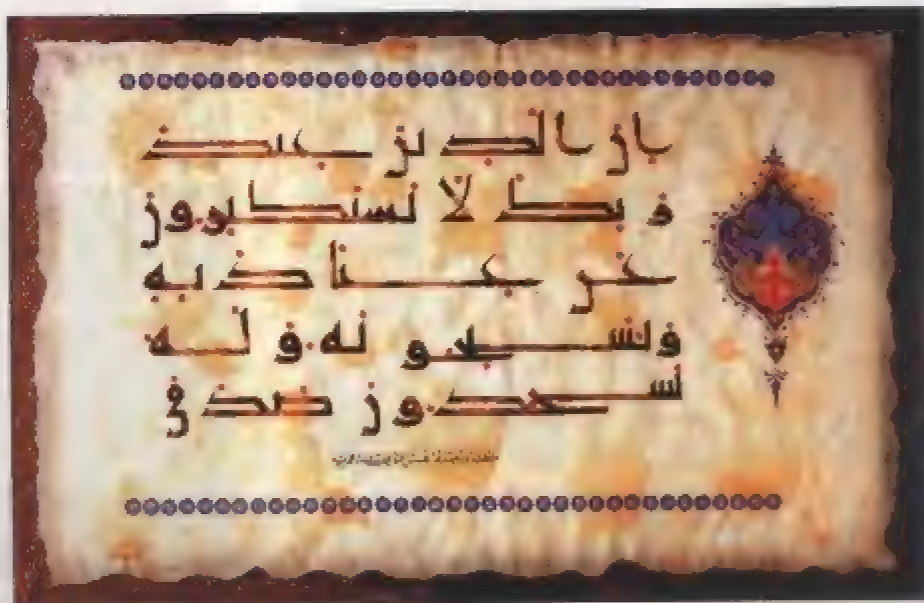 ان الذين عند
ربك لا يستكبرون
عن عبادته
ويسبحونه وله
يسجدون صدق